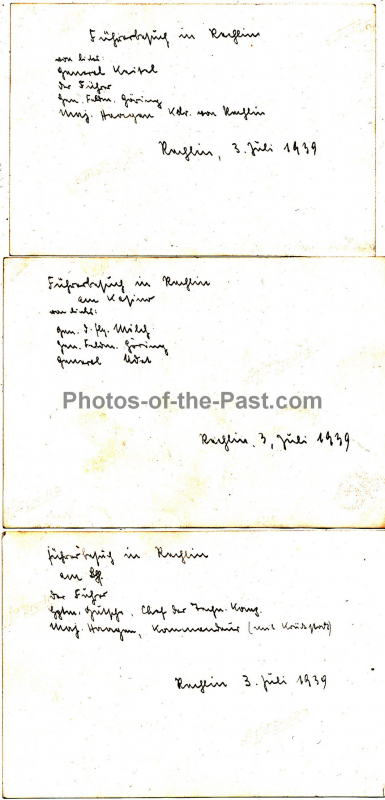 Führerbesuch in Rechlin
von links:
General Keitel
der Führer
Gen. Feldm. Göring
Maj. Haagen Kdr. von Rechlin
Rechlin, 3. Juli 1939
Führerbesuch in Rechlin
am Kasino
von links:
Gen. d. Flg. Milch
Gen. Feldm. Göring
General Udet
Photos-of-the-Past.com
Rechlin, 3. Juli 1939
Führerbesuch in Rechlin
am
der Führer
Hptm. Chef der Komp.
Maj. Haagen, Kommandeur (mit
Rechlin 3. Juli 1939